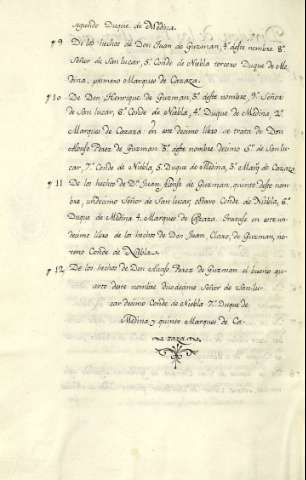 segundo Duque de Medina.
p 9 De los hechos de Don Juan de Guzman, 3.º deste nombre 8.º
Señor de San lucar, 5.º Conde de Niebla tercero Duque de Me-
dina, primero Marques de Cazaza.
p 10 De Don Henrrique de Guzman, 5.º deste nombre, 9.º Señor
de San lucar, 6.º Conde de Niebla, 4.º Duque de Medina, 2.º
Marques de Cazaza en este decimo libro se trata de Don
Alonso Perez de Guzman, 3.º deste nombre decimo S.r de San lu-
car, 7.º Conde de Niebla, 5. Duque de Medina, 3.º Marq.s de Cazaza.
p 11 De los hechos de D.n Juan Alonso de Guzman, quinto deste nom-
bre, undecimo Señor de San lucar, octavo Conde de Niebla, 6.º
Duque de Medina 4. Marques de Cazaza. tratase en este un-
decimo libro de los hechos de Don Juan Claros, de Guzman, no-
veno Conde de Niebla.
p 12 De los hechos de Don Alonso Perez de Guzman el bueno qu-
arto deste nombre duodecimo Señor de San lu-
car decimo Conde de Niebla 7.º Duque de
Medina y quinto Marques de Ca-
zaza